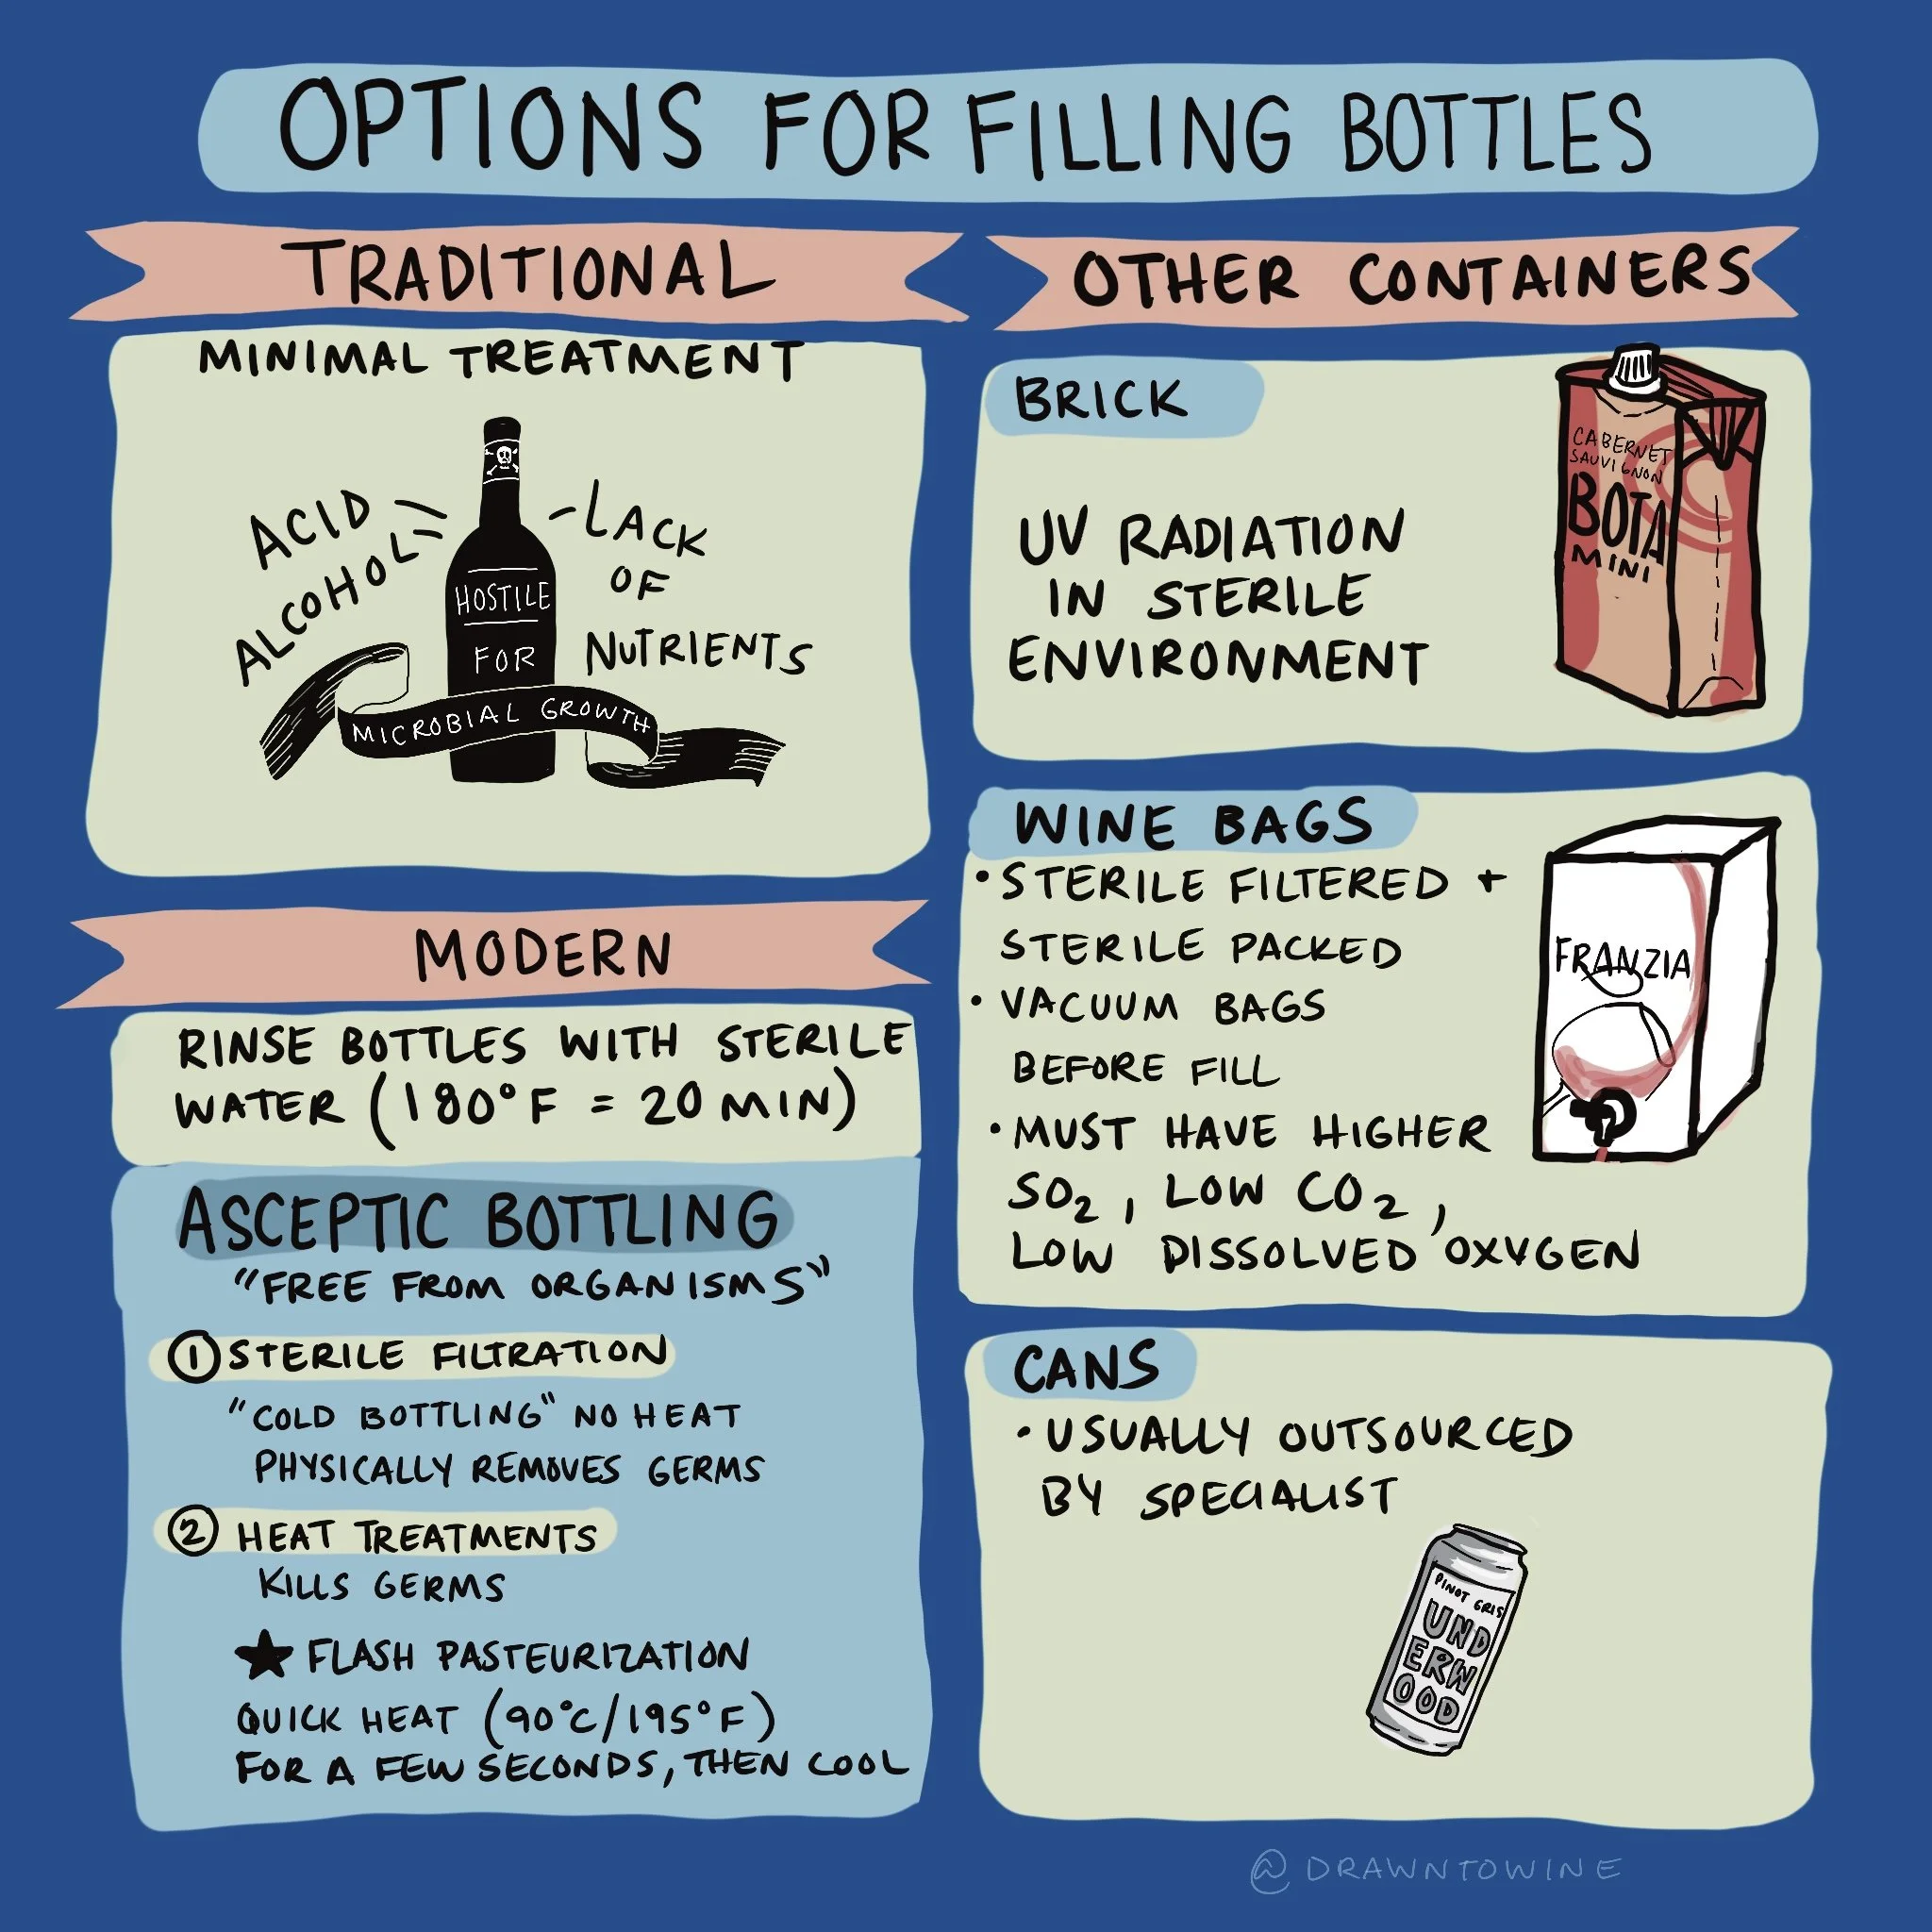 OPTIONS FOR FILLING BOTTLES
TRADITIONAL
MINIMAL TREATMENT
ACID
ALCOHOL
LACK
OF
NUTRIENTS
HOSTILE
FOR
MICROBIAL GROWTH
MODERN
RINSE BOTTLES WITH STERILE
WATER (180°F = 20 MIN)
ASCEPTIC BOTTLING
"FREE FROM ORGANISMS"
① STERILE FILTRATION
"COLD BOTTLING" NO HEAT
PHYSICALLY REMOVES GERMS
② HEAT TREATMENTS
KILLS GERMS
★ FLASH PASTEURIZATION
QUICK HEAT (90°C/195°F)
FOR A FEW SECONDS, THEN COOL
OTHER CONTAINERS
BRICK
UV RADIATION
IN STERILE
ENVIRONMENT
CABERNET
SAUVIGNON
BOTA
MINI
WINE BAGS
• STERILE FILTERED +
STERILE PACKED
• VACUUM BAGS
BEFORE FILL
• MUST HAVE HIGHER
SO₂, LOW CO₂,
LOW DISSOLVED OXYGEN
FRANZIA
CANS
• USUALLY OUTSOURCED
BY SPECIALIST
PINOT GRIS
UND
ERW
OOD
@DRAWNTOWINE